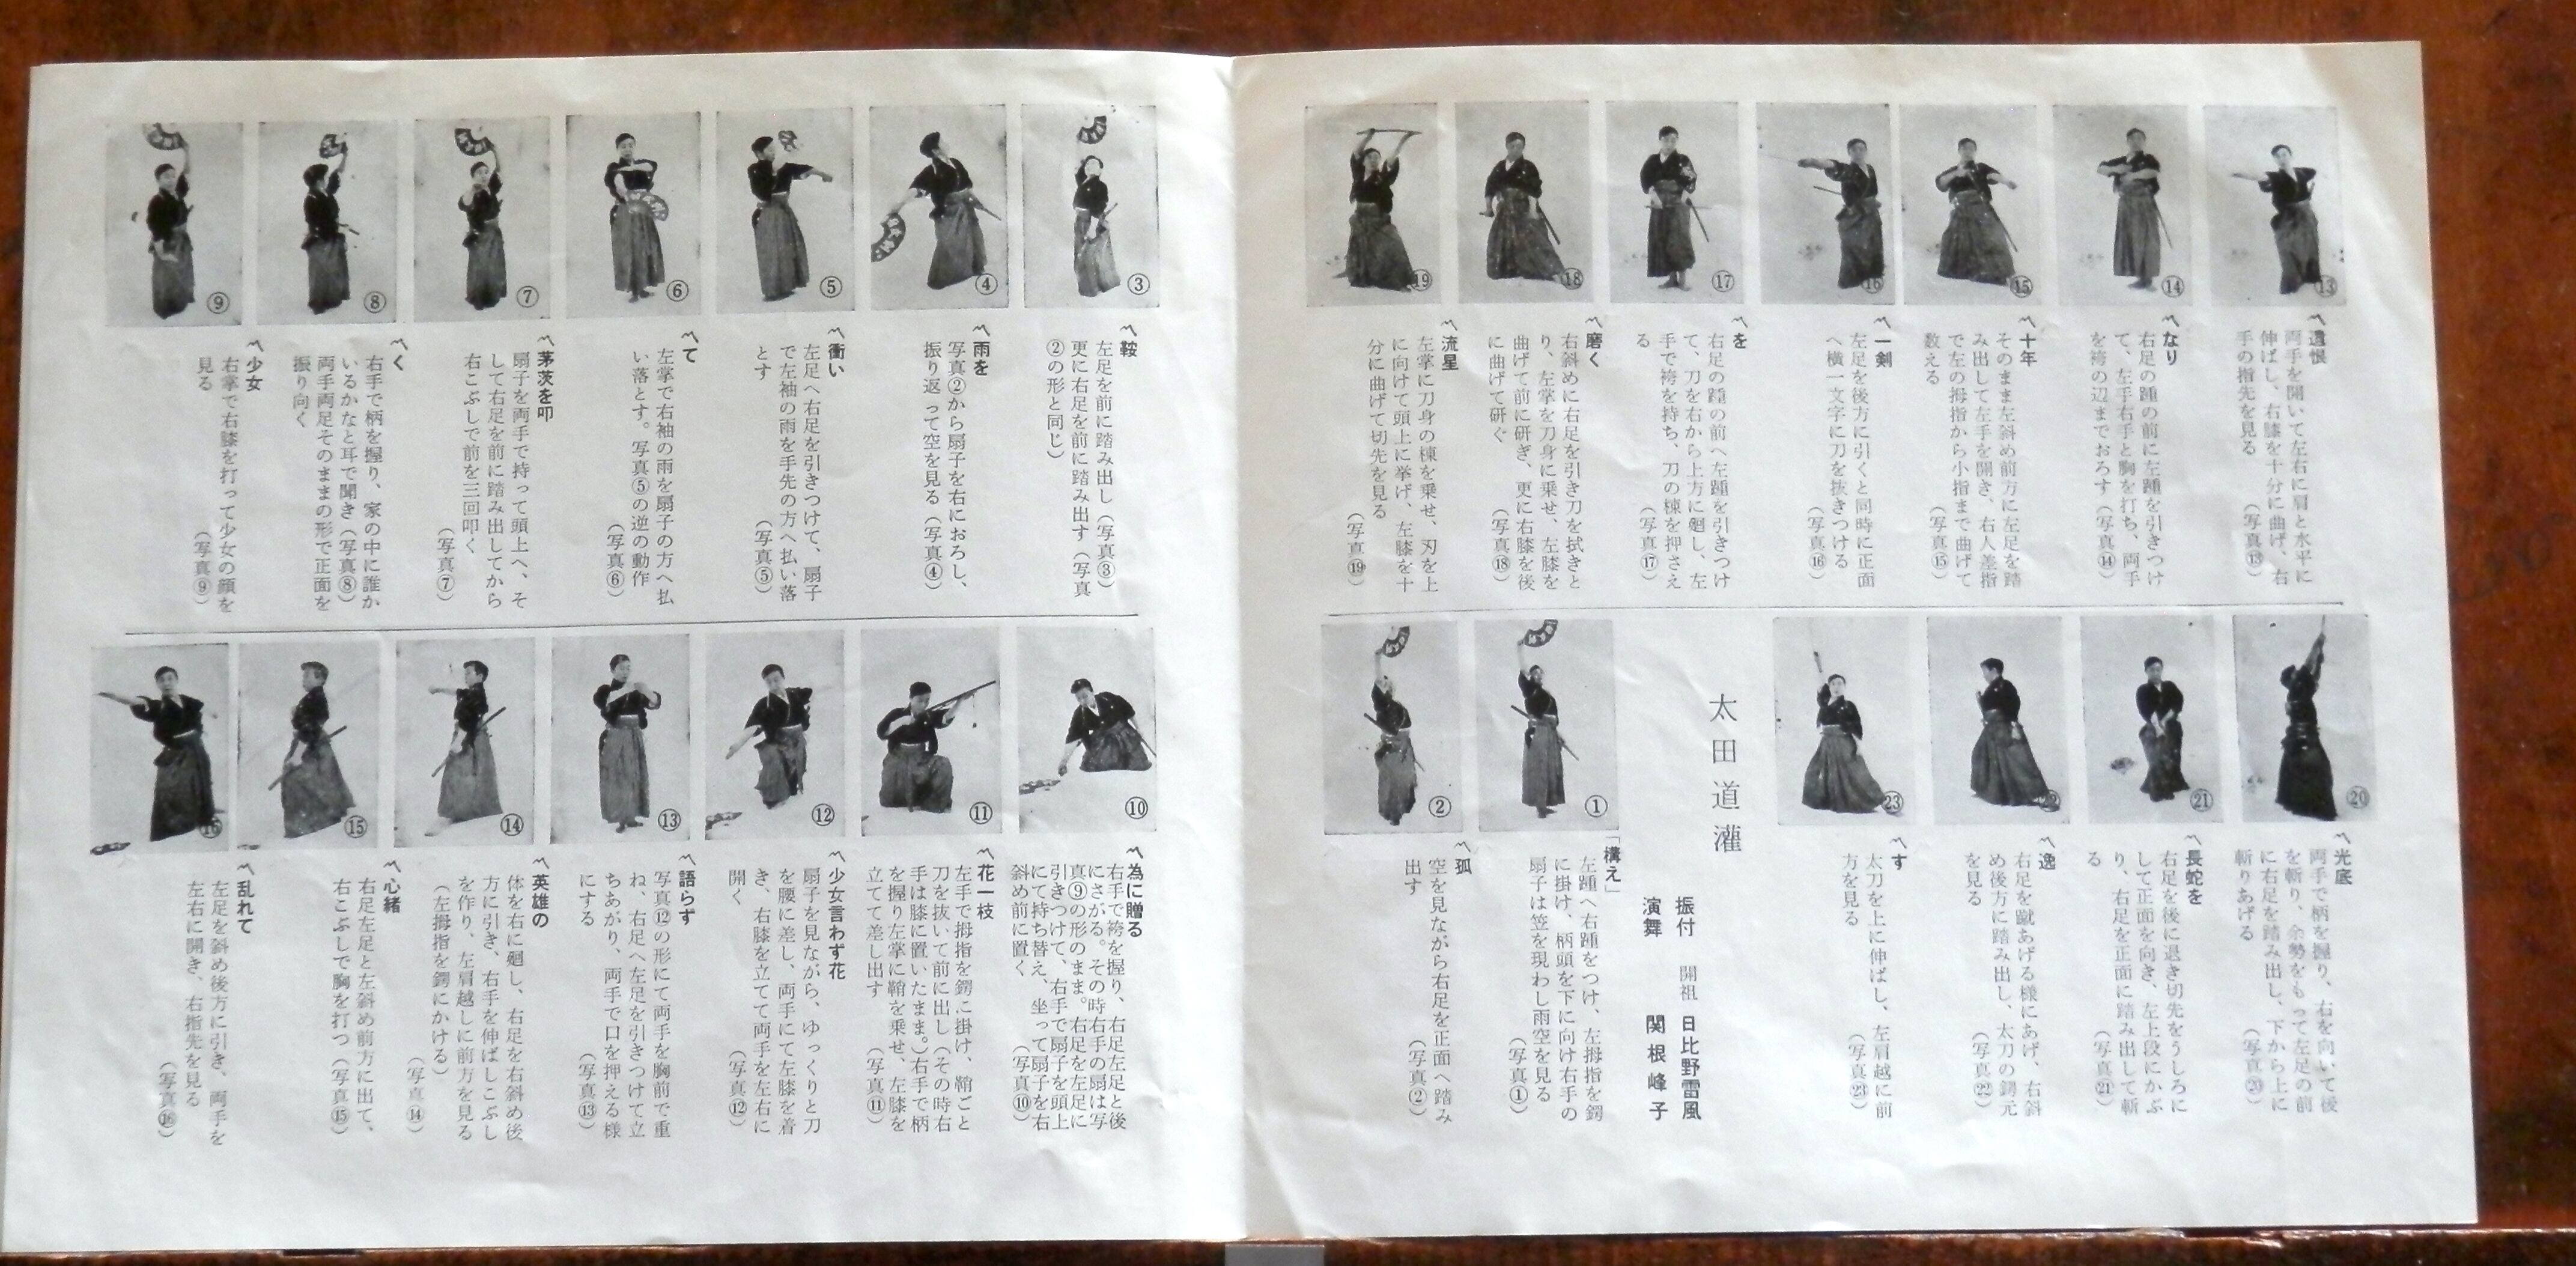 ⑬
⑭
⑮
⑯
⑰
⑱
⑲
〽遺恨
両手を開いて左右に肩と水平に
伸ばし、右膝を十分に曲げ、右
手の指先を見る
（写真⑬）
〽なり
右足の踵の前に左踵を引きつけ
て、左手右手と胸を打ち、両手
を袴の辺までおろす（写真⑭）
〽十年
そのまま左斜め前方に左足を踏
み出して左手を開き、右人差指
で左の拇指から小指まで曲げて
数える
（写真⑮）
〽一剣
左足を後方に引くと同時に正面
へ横一文字に刀を抜きつける
（写真⑯）
〽を
右足の踵の前へ左踵を引きつけ
て、刀を右から上方に廻し、左
手で袴を持ち、刀の棟を押さえ
る
（写真⑰）
〽磨く
右斜めに右足を引き刀を拭きと
り、左掌を刀身に乗せ、左膝を
曲げて前に研ぎ、更に右膝を後
に曲げて研ぐ
（写真⑱）
〽流星
左掌に刀身の棟を乗せ、刃を上
に向けて頭上に挙げ、左膝を十
分に曲げて切先を見る
（写真⑲）
⑳
㉑
㉒
㉓
〽光底
両手で柄を握り、右を向いて後
を斬り、余勢をもって左足の前
に右足を踏み出し、下から上に
斬りあげる
（写真⑳）
〽長蛇を
右足を後に退き切先をうしろに
して正面を向き、左上段にかぶ
り、右足を正面に踏み出して斬
る
（写真㉑）
〽逸
右足を蹴あげる様にあげ、右斜
め後方に踏み出し、太刀の鍔元
を見る
（写真㉒）
〽す
太刀を上に伸ばし、左肩越に前
方を見る
（写真㉓）
太田道灌
振付 開祖 日比野雷風
演舞 関根峰子
①
②
「構え」
左踵へ右踵をつけ、左拇指を鍔
に掛け、柄頭を下に向け右手の
扇子は笠を現わし雨空を見る
（写真①）
〽孤
空を見ながら右足を正面へ踏み
出す
（写真②）
③
④
⑤
⑥
⑦
⑧
⑨
〽鞍
左足を前に踏み出し（写真③）
更に右足を前に踏み出す（写真
②の形と同じ）
〽雨を
写真②から扇子を右におろし、
振り返って空を見る（写真④）
〽衝い
左足へ右足を引きつけて、扇子
で左袖の雨を手先の方へ払い落
とす
（写真⑤）
〽て
左掌で右袖の雨を扇子の方へ払
い落とす。写真⑤の逆の動作
（写真⑥）
〽茅茨を叩
扇子を両手で持って頭上へ、そ
して右足を前に踏み出してから
右こぶしで前を三回叩く
（写真⑦）
〽く
右手で柄を握り、家の中に誰か
いるかなと耳で聞き（写真⑧）
両手両足そのままの形で正面を
振り向く
〽少女
右掌で右膝を打って少女の顔を
見る
（写真⑨）
⑩
⑪
⑫
⑬
⑭
⑮
⑯
〽為に贈る
右手で袴を握り、右足左足と後
にさがる。その時右手の扇は写
真⑨の形のまま。右足を左足に
引きつけて、右手で扇子を頭上
にて持ち替え、坐って扇子を右
斜め前に置く
（写真⑩）
〽花一枝
左手で拇指を鍔に掛け、鞘ごと
刀を抜いて前に出し（その時右
手は膝に置いたまま。）右手で柄
を握り左掌に鞘を乗せ、左膝を
立てて差し出す
（写真⑪）
〽少女言わず花
扇子を見ながら、ゆっくりと刀
を腰に差し、両手にて左膝を着
き、右膝を立てて両手を左右に
開く
（写真⑫）
〽語らず
写真⑫の形にて両手を胸前で重
ね、右足へ左足を引きつけて立
ちあがり、両手で口を押える様
にする
（写真⑬）
〽英雄の
体を右に廻し、右足を右斜め後
方に引き、右手を伸ばしこぶし
を作り、左肩越しに前方を見る
（左拇指を鍔にかける）
（写真⑭）
〽心緒
右足左足と左斜め前方に出て、
右こぶしで胸を打つ（写真⑮）
〽乱れて
左足を斜め後方に引き、両手を
左右に開き、右指先を見る
（写真⑯）